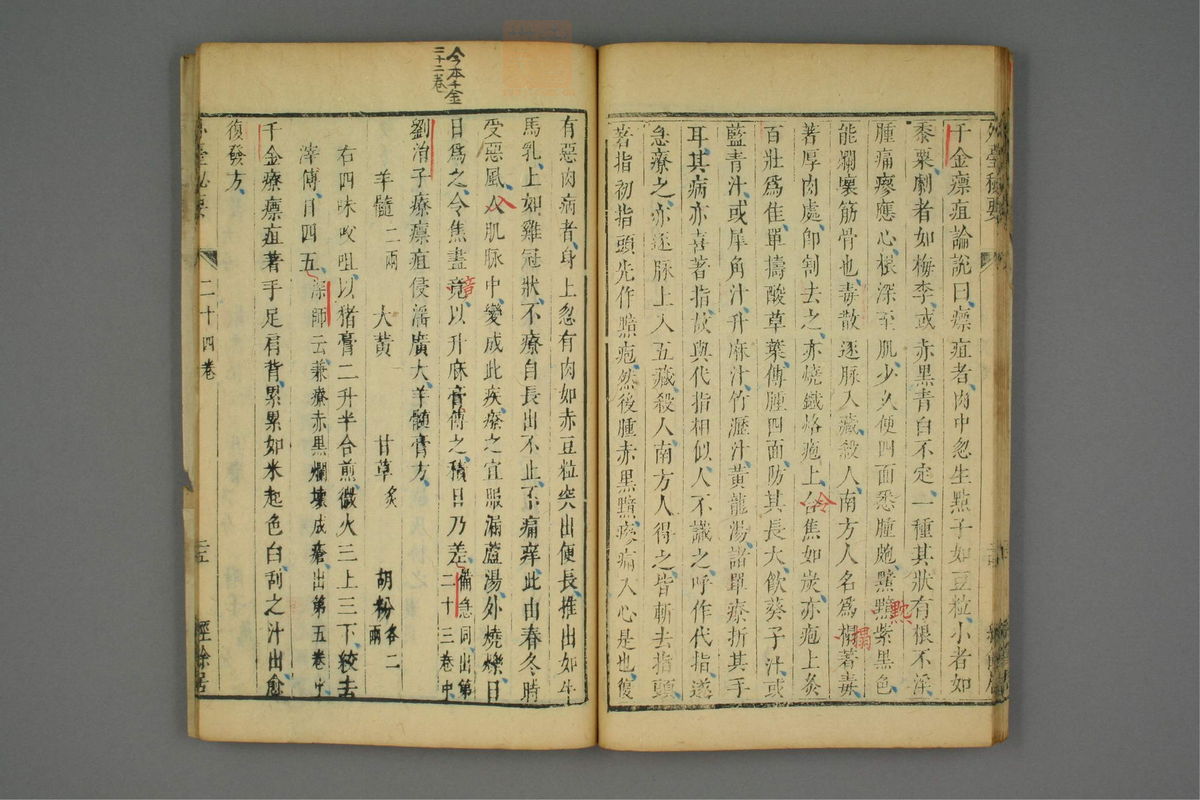 千金瘭疽論說曰瘭疽者肉中忽生點子如豆粒小者如
黍粟劇者如梅李或赤黑青白不定一種其狀有根不浮
腫痛疼應心根深至肌少久便四面悉腫皰黯黯紫黑色
能爛壞筋骨也毒散逐脉入藏殺人南方人名為榻著毒
著厚肉處卽割去之亦燒鐵烙疱上令焦如炭亦疱上灸
百壯為佳單擣酸草葉傅腫四面防其長大飲葵子汁或
藍青汁或犀角汁升麻汁竹瀝汁黃龍湯諸單療折其手
耳其病亦喜著指故與代指相似人不識之呼作代指遂
急療之亦逐脉上入五藏殺人南方人得之皆斬去指頭
著指初指頭先作黯疱然後腫赤黑黯疼痛入心是也復
有惡肉病者身上忽有肉如赤豆粒突出便長推出如牛
馬乳上如雞冠狀不療自長出不止不痛痒此由春冬時
受惡風入肌脉中變成此疾療之宜服漏蘆湯外燒爍日
日為之令焦盡竟以升麻膏傅之積日乃差備急同出第二十三卷中
劉涓子療瘭疽侵淫廣大羊髓膏方
羊髓二兩 大黃 甘草炙 胡粉各二兩
右四味㕮咀以猪膏二升半合煎微火三上三下絞去
滓傅日四五深師云兼療赤黑爛壞成瘡出第五卷中
千金療瘭疽著手足肩背累累如米起色白刮之汁出愈
復發方
外臺秘要
二十四卷
二十五
經餘居
今本千金
二十二卷